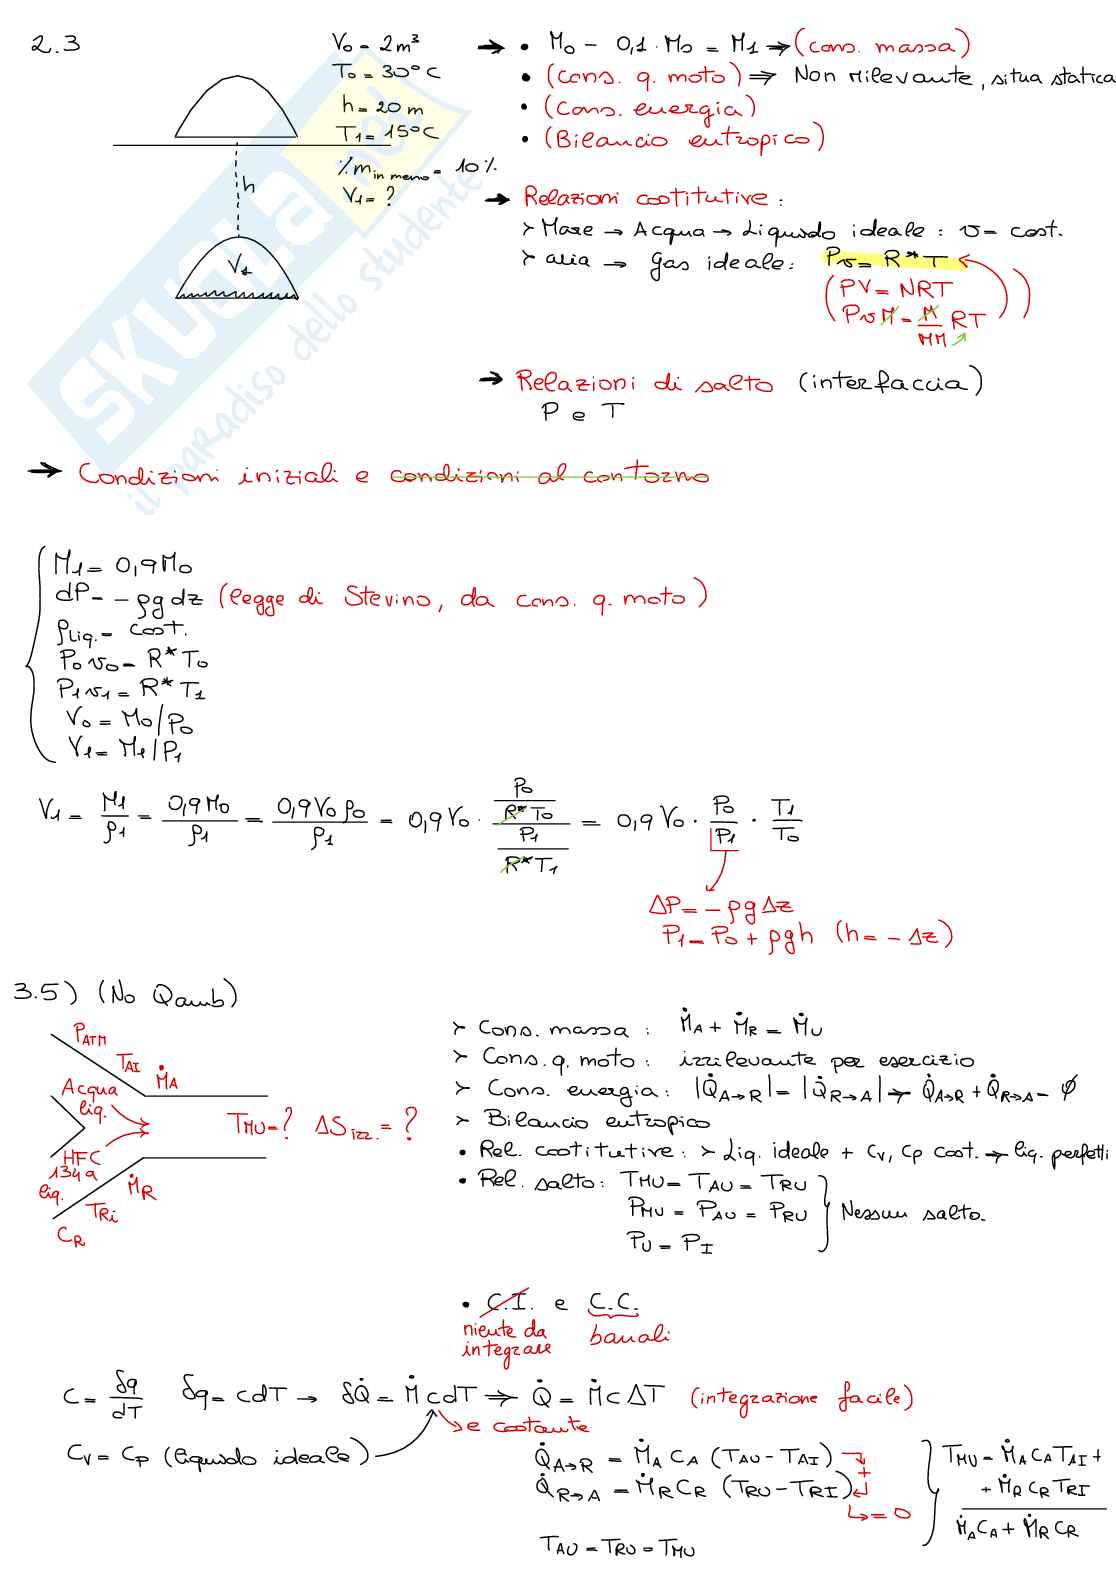 2.3
V₀ = 2m³
T₀ = 30°C
h = 20 m
T₁ = 15°C
% m in meno = 10%
V₁ = ?
h
V₁
→ • M₀ - 0,1 · M₀ = M₁ ⇒ (cons. massa)
• (cons. q. moto) ⇒ Non rilevante, situa statica
• (cons. energia)
• (Bilancio entropico)
→ Relazioni costitutive:
> Mare → Acqua → Liquido ideale: v = cost.
> aria → gas ideale: Pv = R*T
(PV = NRT)
(PvM = M/MM RT)
→ Relazioni di salto (interfaccia)
P e T
→ Condizioni iniziali e condizioni al contorno
M₁ = 0,9M₀
dP = -ρgdz (legge di Stevino, da cons. q. moto)
ρLiq. = cost.
P₀v₀ = R*T₀
P₁v₁ = R*T₁
V₀ = M₀/ρ₀
V₁ = M₁/ρ₁
V₁ = M₁/ρ₁ = 0,9M₀/ρ₁ = 0,9V₀ρ₀/ρ₁ = 0,9V₀ · (P₀/R*T₀)/(P₁/R*T₁) = 0,9V₀ · P₀/P₁ · T₁/T₀
ΔP = -ρgΔz
P₁ = P₀ + ρgh (h = -Δz)
3.5) (No Qamb)
PATM
TAI
ṀA
Acqua
liq.
HFC
134a
liq.
ṀR
TRi
CR
TMU = ? ΔS izz. = ?
> Cons. massa: ṀA + ṀR = ṀU
> Cons. q. moto: irrilevante per esercizio
> Cons. energia: |Q̇A→R| = |Q̇R→A| → Q̇A→R + Q̇R→A = ∅
> Bilancio entropico
• Rel. costitutive: > Liq. ideale + Cv, Cp cost. → liq. perfetti
• Rel. salto: TMU = TAU = TRU
PMU = PAU = PRU
PU = PI
Nessun salto.
• C.I. e C.C.
niente da integrare
banali
C = δq/dT δq = cdT → δQ̇ = ṀcdT ⇒ Q̇ = ṀcΔT (integrazione facile)
e costante
Cv = Cp (liquido ideale)
Q̇A→R = ṀA CA (TAU - TAI)
+
Q̇R→A = ṀR CR (TRU - TRI)
↳ = 0
TAU = TRU = TMU
TMU = ṀA CA TAI +
+ ṀR CR TRI
ṀA CA + ṀR CR
SKUOLA.net
il paradiso dello studente